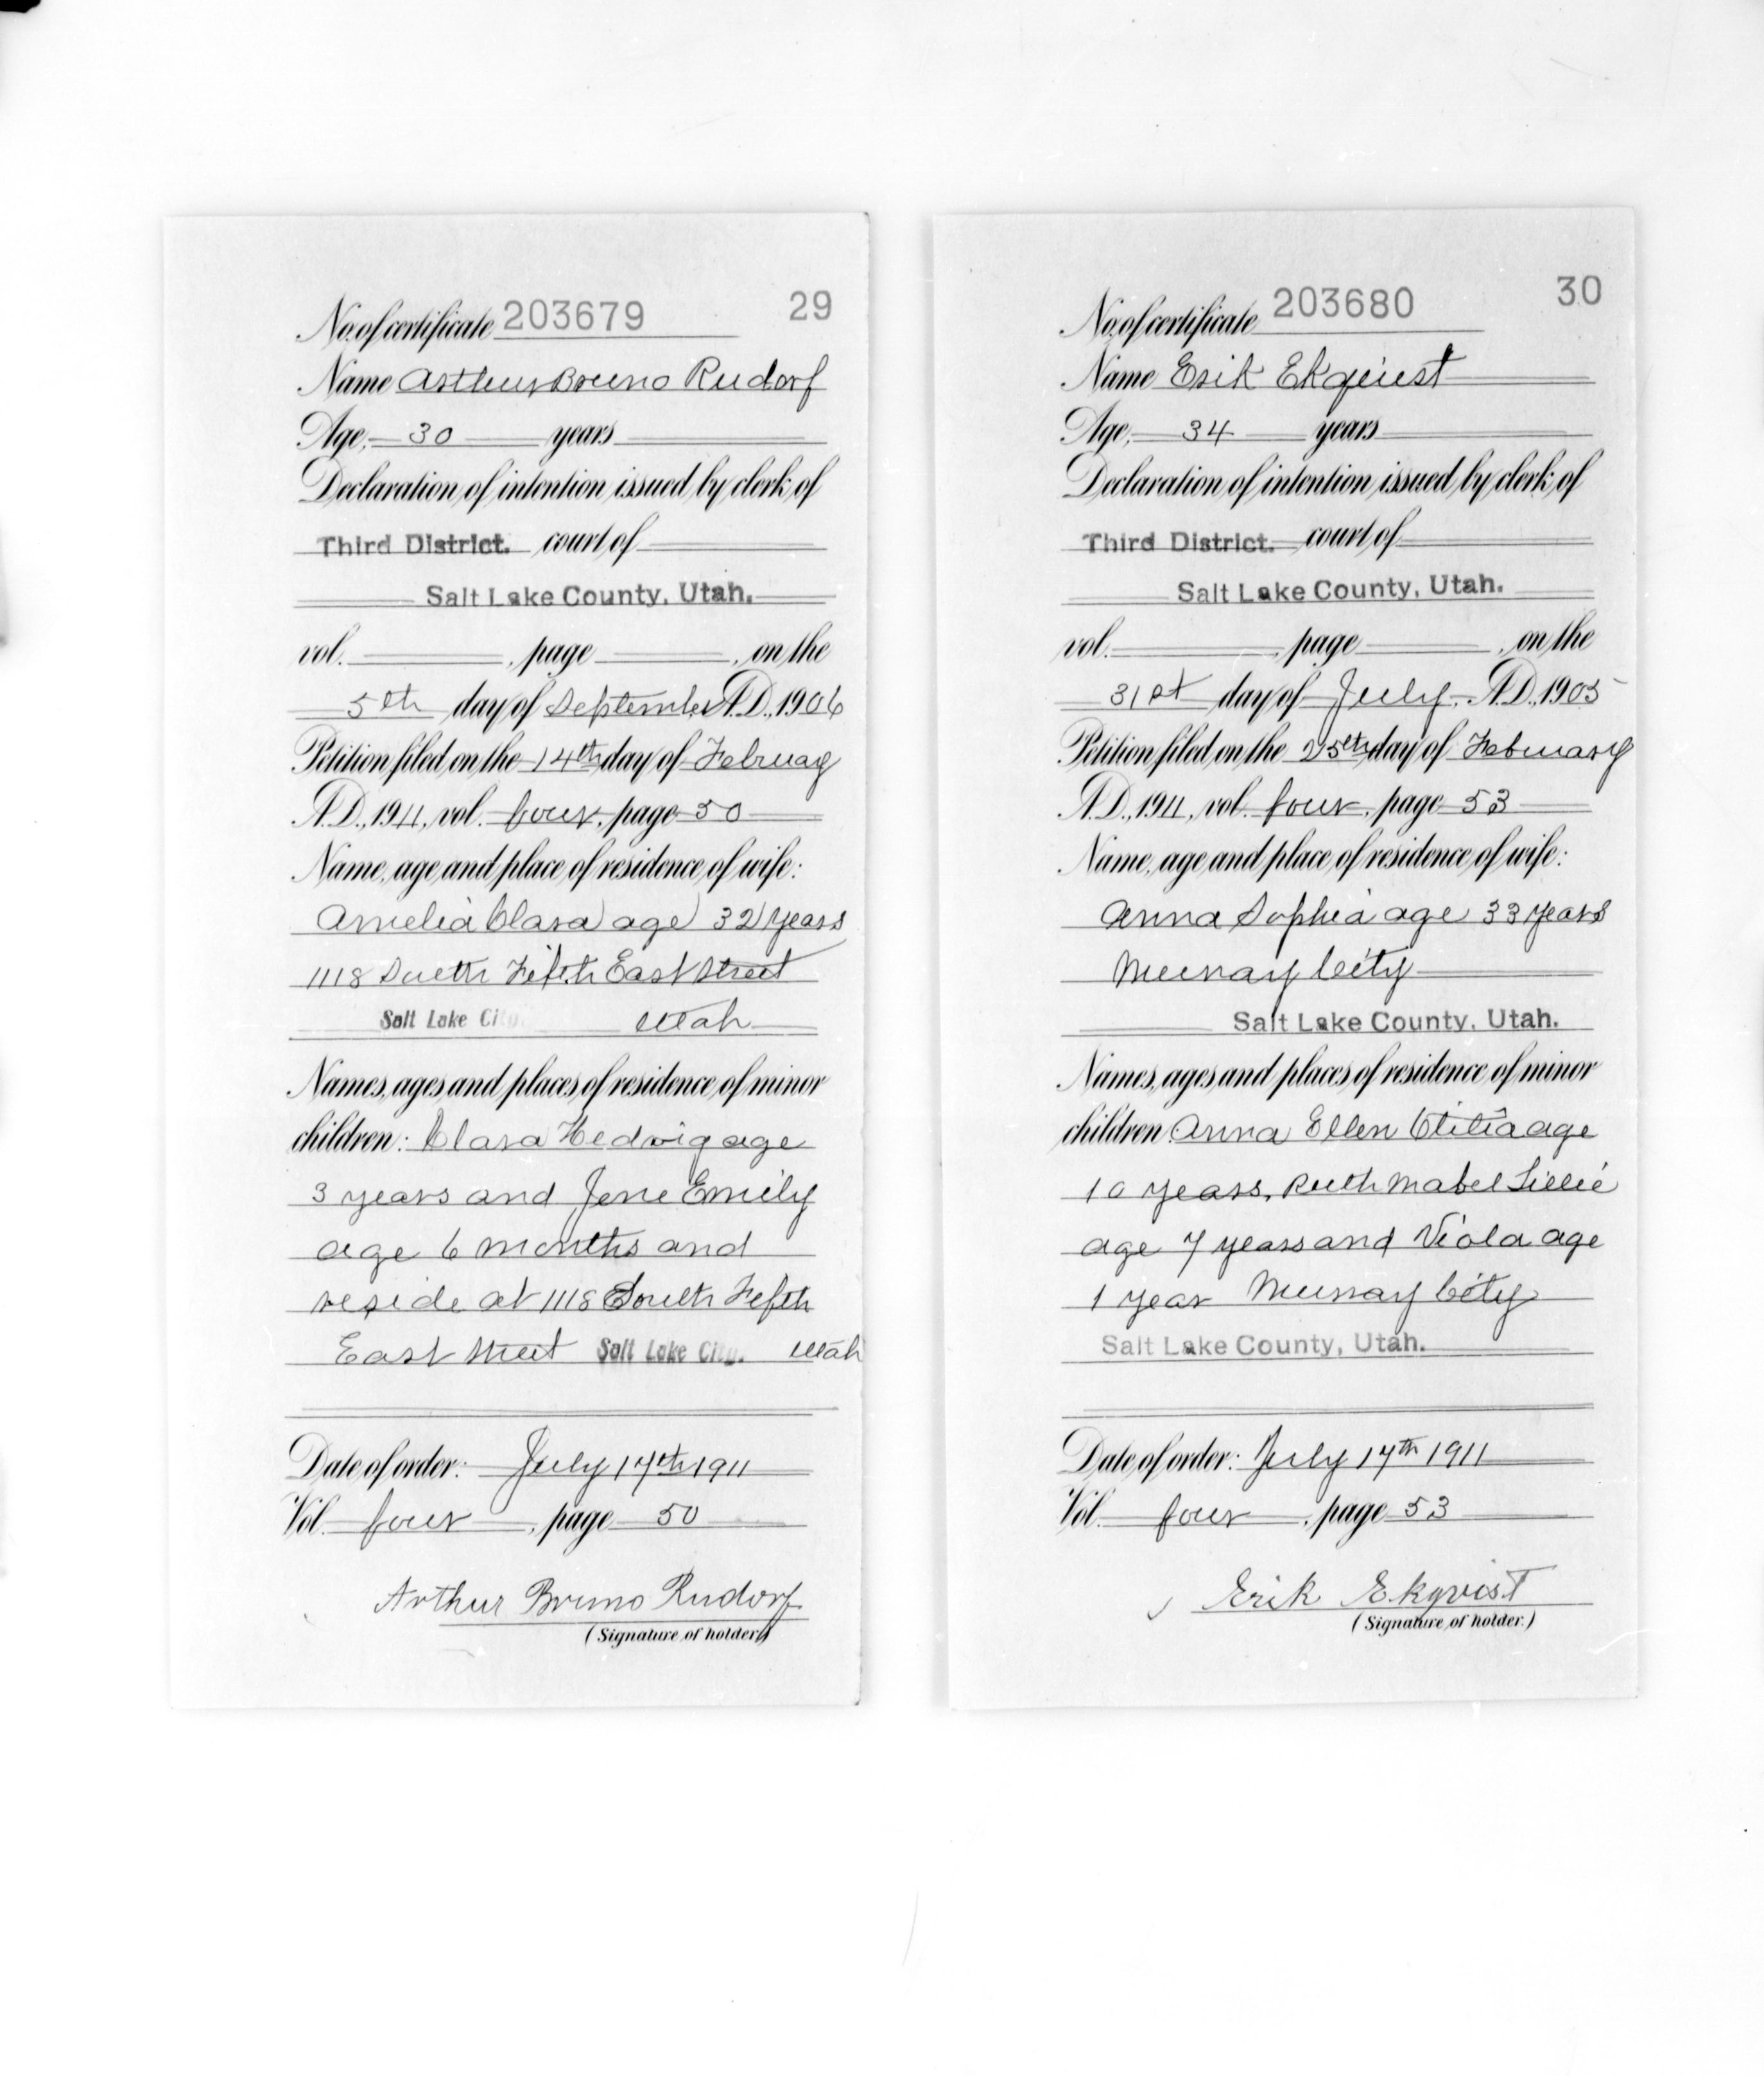 No. of certificate 203679 29
Name Arthur Bruno Rudorf
Age, 30 years
Declaration of intention issued by clerk of
Third District. court of
Salt Lake County, Utah.
vol. , page , on the
5th day of September A.D., 1906
Petition filed on the 14th day of Februay
A.D., 1911, vol. four, page 50
Name, age and place of residence of wife:
Amelia Clara age 32 years
1118 South Fifth East Street
Salt Lake City. Utah
Names, ages and places of residence of minor
children: Clara Hedwig age
3 years and Jene Emily
age 6 months and
reside at 1118 South Fifth
East Street Salt Lake City. Utah
Date of order: July 17th 1911
Vol. four, page 50
Arthur Bruno Rudorf
(Signature of holder.)
No. of certificate 203680 30
Name Erik Ekquist
Age, 34 years
Declaration of intention issued by clerk of
Third District. court of
Salt Lake County, Utah.
vol. , page , on the
31st day of July, A.D., 1905
Petition filed on the 25th day of February
A.D., 1911, vol. four, page 53
Name, age and place of residence of wife:
Anna Sophia age 33 years
Murray City
Salt Lake County, Utah.
Names, ages and places of residence of minor
children: Anna Ellen age
10 years, Ruth Mabel Lillie
age 7 years and Viola age
1 year Murray City
Salt Lake County, Utah.
Date of order: July 17th 1911
Vol. four, page 53
Erik Ekqvist
(Signature of holder.)